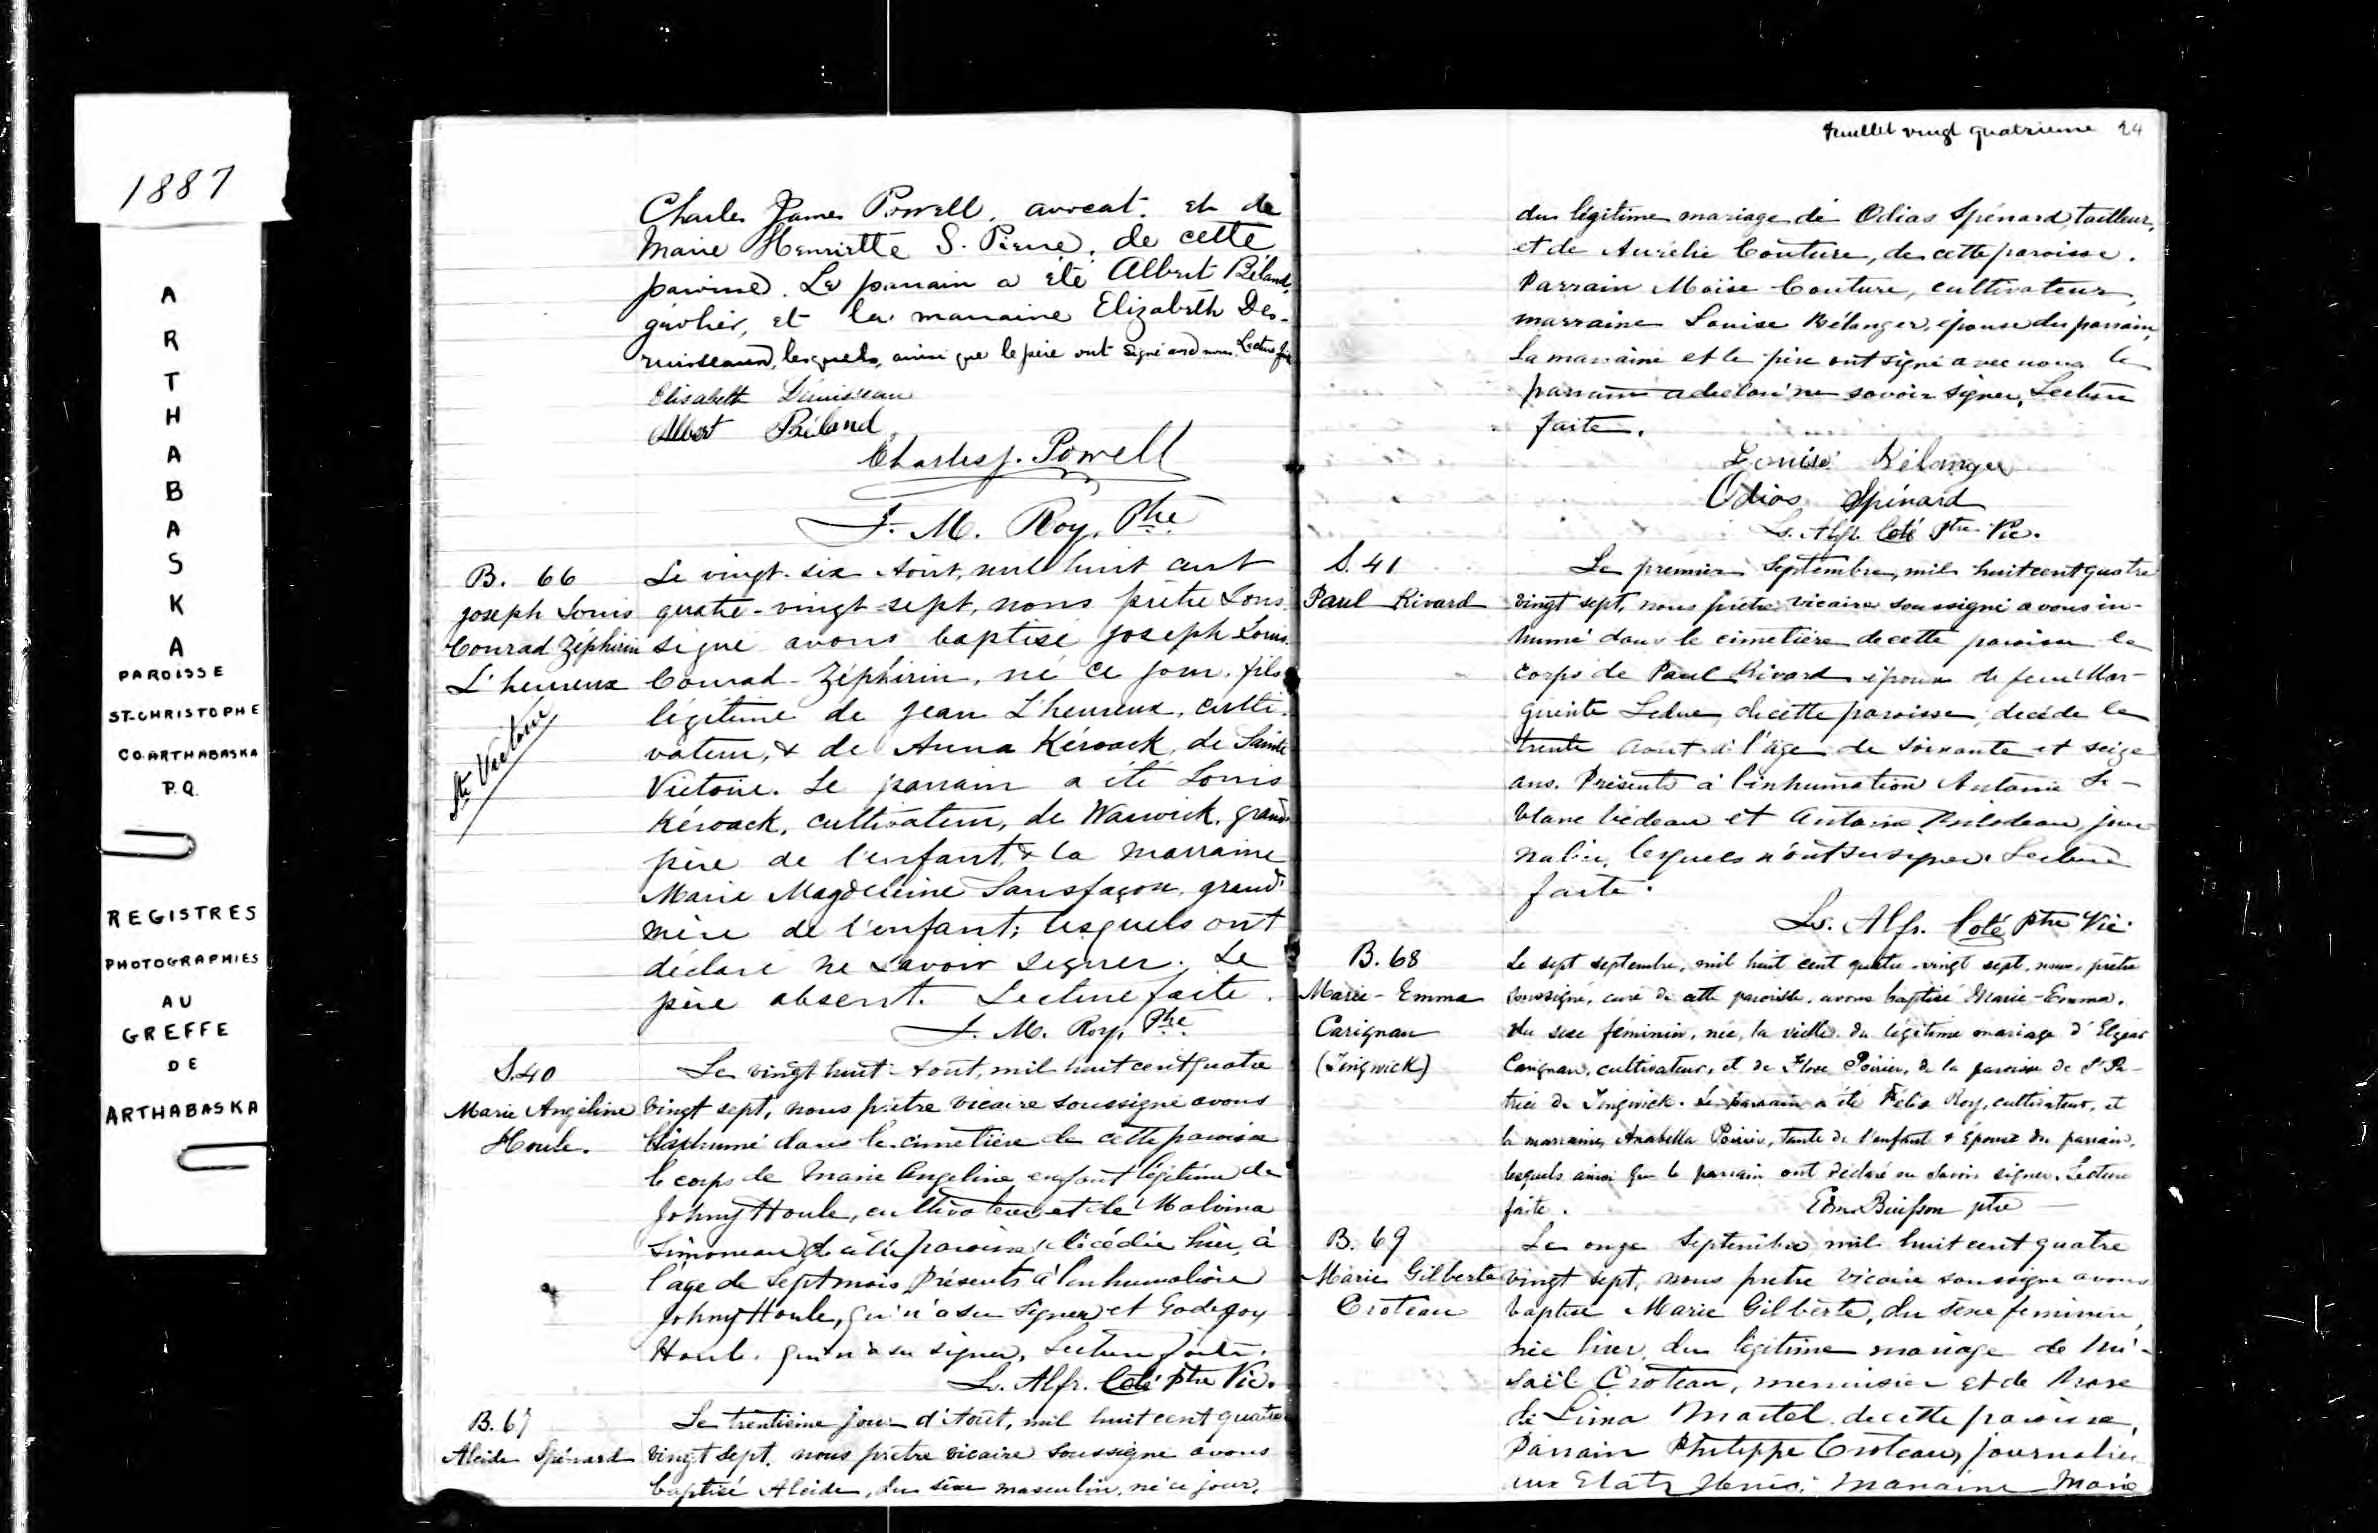 1887
A
R
T
H
A
B
A
S
K
A
PAROISSE
ST-CHRISTOPHE
CO.ARTHABASKA
P.Q.
REGISTRES
PHOTOGRAPHIES
AU
GREFFE
DE
ARTHABASKA
Charles James Powell, avocat, et de
Marie Henriette S. Pierre, de cette
paroisse. Le parrain a été Albert Béland,
geôlier, et la marraine Elizabeth Des-
ruisseaux, lesquels, ainsi que le père ont signé avec nous. Lecture
Elisabeth
Albert Béland
Charles J. Powell
F. M. Roy, Ptre
B. 66
Joseph Louis
Conrad Zéphirin
L'heureux
Ste Victoire
Le vingt-six Août, mil huit cent
quatre-vingt-sept, nous prêtre sous
signé avons baptisé Joseph Louis
Conrad-Zéphirin, né ce jour, fils
légitime de Jean L'heureux, culti-
vateur, & de Anna Kéroack, de Sainte
Victoire. Le parrain a été Louis
Kéroack, cultivateur, de Warwick, grand
père de l'enfant & la marraine
Marie Magdeleine Sansfaçon, grand'
mère de l'enfant; lesquels ont
déclaré ne savoir signer. Le
père absent. Lecture faite.
F. M. Roy, Ptre
S.40
Marie Angéline
Houle.
Le vingt huit Août, mil huit cent quatre
vingt sept, nous prêtre vicaire soussigné avons
inhumé dans le cimetière de cette paroisse
le corps de Marie Angeline enfant légitime de
Johny Houle, cultivateur et de Malvina
Simoneau de cette paroisse, décédée hier, à
l'âge de sept mois. Présents à l'inhumation
Johny Houle, qui n'a su signer et Godefroy
Houle, qui n'a su signer. Lecture faite.
Ls. Alfr. Coté ptre Vic.
B. 67
Alcide Spénard
Le trentième jour d'Août, mil huit cent quatre
vingt sept, nous prêtre vicaire soussigné avons
baptisé Alcide, du sexe masculin, né ce jour,
feuillet vingt quatrieme 24
du légitime mariage de Odias Spénard, tailleur,
et de Aurélie Couture, de cette paroisse.
Parrain Moïse Couture, cultivateur,
marraine Louise Bélanger, épouse du parrain,
La marraine et le père ont signé avec nous le
parrain a déclaré ne savoir signer. Lecture
faite.
Louise Bélanger
Odias Spénard
Ls. Alfr. Coté Ptre Vic.
S. 41
Paul Rivard
Le premier Septembre, mil huit cent quatre
vingt sept, nous prêtre vicaire soussigné avons in-
humé dans le cimetière de cette paroisse le
corps de Paul Rivard époux de feue Mar-
guerite Leduc, de cette paroisse, décédé le
trente août à l'âge de soixante et seize
ans. Présents à l'inhumation Antoine Le-
blanc bedeau et Antoine Bilodeau, jour-
nalier, lesquels n'ont su signer. Lecture
faite.
Ls. Alfr. Coté ptre Vic.
B. 68
Marie-Emma
Carignan
(Tingwick)
Le sept septembre, mil huit cent quatre-vingt sept, nous, prêtre
soussigné, curé de cette paroisse, avons baptisé Marie-Emma,
du sexe féminin, née, la veille, du légitime mariage d'Elzéar
Carignan, cultivateur, et de Flore Poirier, de la paroisse de St Pa-
trice de Tingwick. Le parrain a été Félix Roy, cultivateur, et
la marraine, Anabella Poirier, tante de l'enfant & épouse du parrain,
lesquels ainsi que le parrain ont déclaré ne savoir signer. Lecture
faite. Edm. Buisson ptre
B. 69
Marie Gilberte
Croteau
Le onze Septembre mil huit cent quatre
vingt sept, nous prêtre vicaire soussigné avons
baptisé Marie Gilberte, du sexe feminin,
née hier, du légitime mariage de Mi-
saël Croteau, menuisier et de Rose
de Lima Martel, de cette paroisse.
Parrain Philippe Croteau, journalier
aux Etats Unis. Marraine Marie